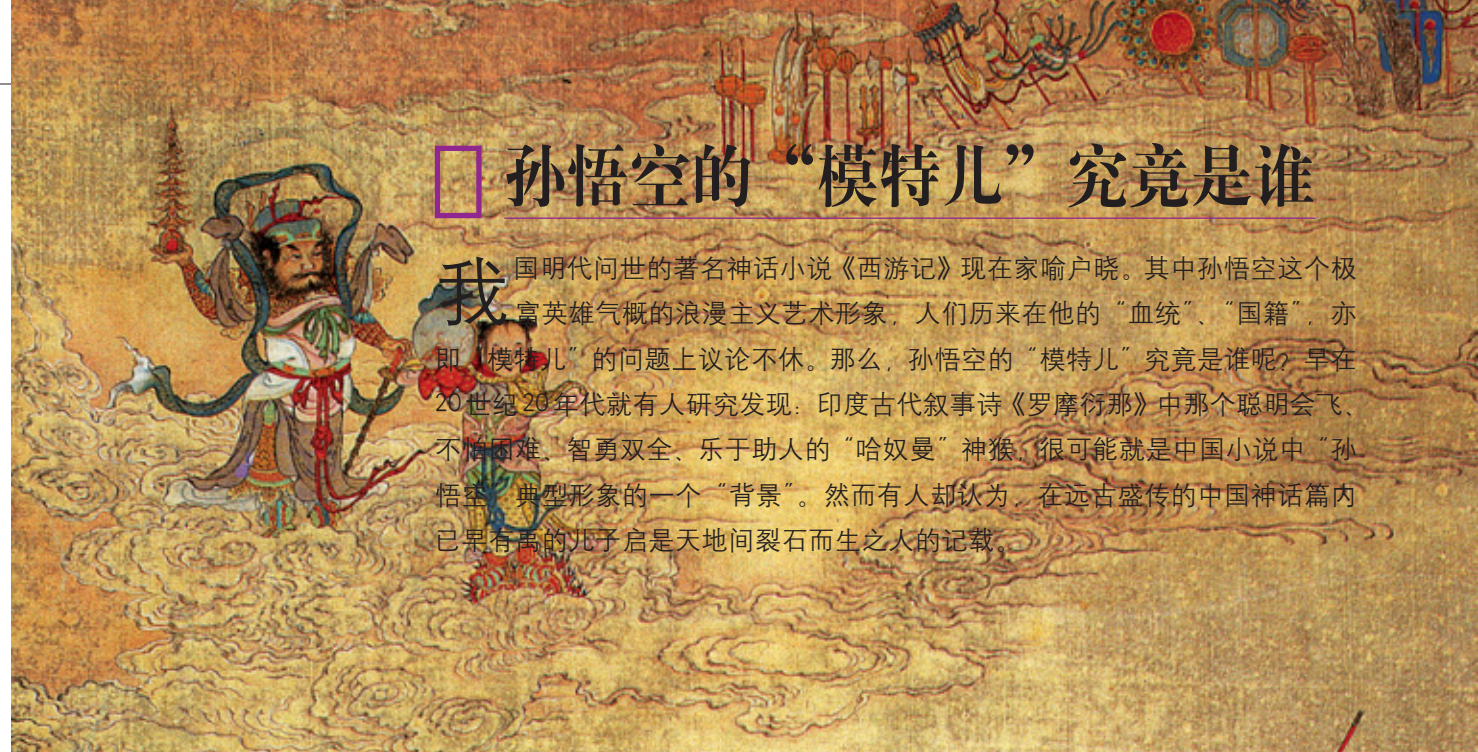 孙悟空的“模特儿”究竟是谁
我国明代问世的著名神话小说《西游记》现在家喻户晓。其中孙悟空这个极
富英雄气概的浪漫主义艺术形象，人们历来在他的“血统”、“国籍”，亦
即“模特儿”的问题上议论不休。那么，孙悟空的“模特儿”究竟是谁呢？早在
20世纪20年代就有人研究发现：印度古代叙事诗《罗摩衍那》中那个聪明会飞、
不怕困难、智勇双全、乐于助人的“哈奴曼”神猴，很可能就是中国小说中“孙
悟空”典型形象的一个“背景”。然而有人却认为，在远古盛传的中国神话篇内
已早有禹的儿子启是天地间裂石而生之人的记载。